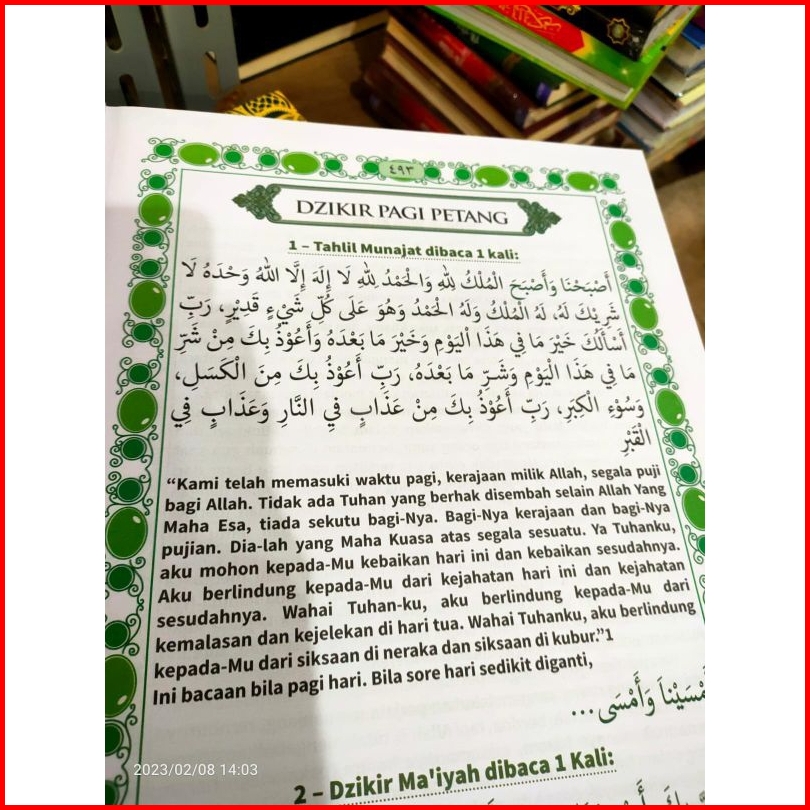 ٤٩٣
DZIKIR PAGI PETANG
1 – Tahlil Munajat dibaca 1 kali:
أَصْبَحْنَا وَأَصْبَحَ الْمُلْكُ لِلّٰهِ وَالْحَمْدُ لِلّٰهِ لَا إِلَهَ إِلَّا اللّٰهُ وَحْدَهُ لَا
شَرِيْكَ لَهُ، لَهُ الْمُلْكُ وَلَهُ الْحَمْدُ وَهُوَ عَلَى كُلِّ شَيْءٍ قَدِيْرٍ، رَبِّ
أَسْأَلُكَ خَيْرَ مَا فِي هَذَا الْيَوْمِ وَخَيْرَ مَا بَعْدَهُ وَأَعُوْذُ بِكَ مِنْ شَرِّ
مَا فِي هَذَا الْيَوْمِ وَشَرِّ مَا بَعْدَهُ، رَبِّ أَعُوْذُ بِكَ مِنَ الْكَسَلِ،
وَسُوْءِ الْكِبَرِ، رَبِّ أَعُوْذُ بِكَ مِنْ عَذَابٍ فِي النَّارِ وَعَذَابٍ فِي
الْقَبْرِ
“Kami telah memasuki waktu pagi, kerajaan milik Allah, segala puji
bagi Allah. Tidak ada Tuhan yang berhak disembah selain Allah Yang
Maha Esa, tiada sekutu bagi-Nya. Bagi-Nya kerajaan dan bagi-Nya
pujian. Dia-lah yang Maha Kuasa atas segala sesuatu. Ya Tuhanku,
aku mohon kepada-Mu kebaikan hari ini dan kebaikan sesudahnya.
Aku berlindung kepada-Mu dari kejahatan hari ini dan kejahatan
sesudahnya. Wahai Tuhan-ku, aku berlindung kepada-Mu dari
kemalasan dan kejelekan di hari tua. Wahai Tuhanku, aku berlindung
kepada-Mu dari siksaan di neraka dan siksaan di kubur.”1
Ini bacaan bila pagi hari. Bila sore hari sedikit diganti,
وَأَمْسَى...
2 – Dzikir Ma'iyah dibaca 1 Kali:
2023/02/08 14:03